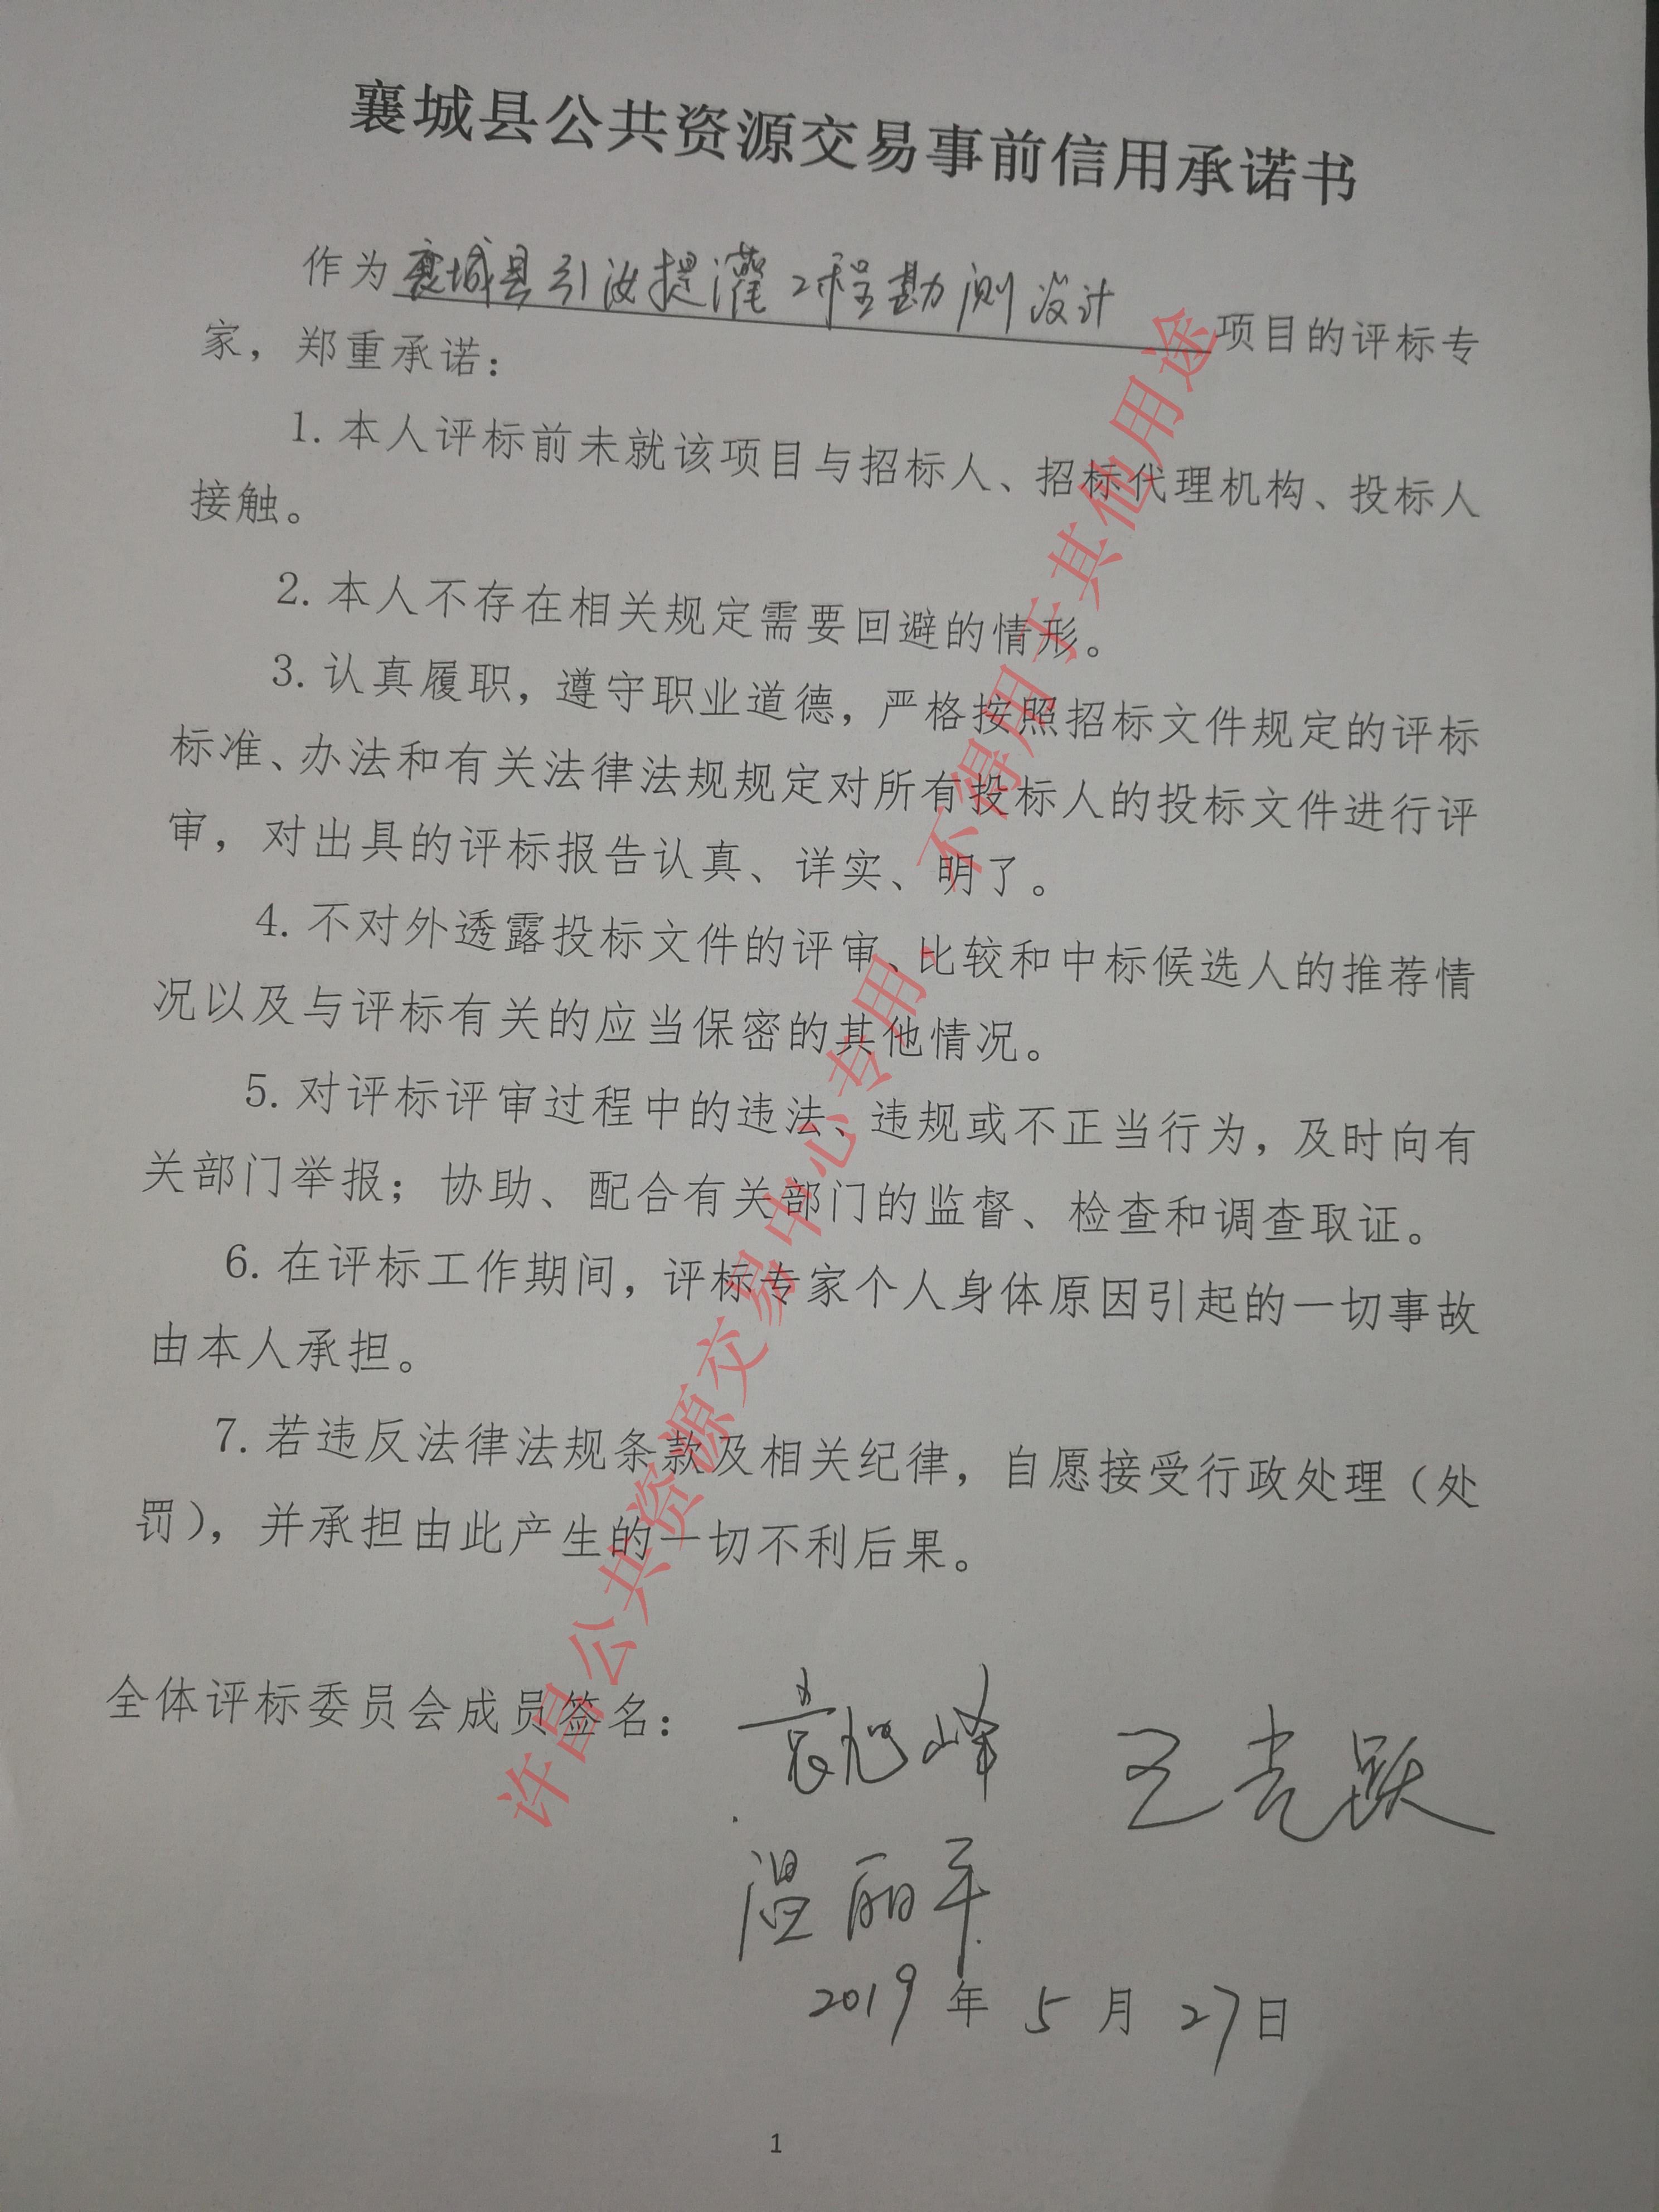 襄城县公共资源交易事前信用承诺书
作为襄城县引汝提灌工程勘测设计项目的评标专
家，郑重承诺：
1.本人评标前未就该项目与招标人、招标代理机构、投标人
接触。
2.本人不存在相关规定需要回避的情形。
3.认真履职，遵守职业道德，严格按照招标文件规定的评标
标准、办法和有关法律法规规定对所有投标人的投标文件进行评
审，对出具的评标报告认真、详实、明了。
4.不对外透露投标文件的评审、比较和中标候选人的推荐情
况以及与评标有关的应当保密的其他情况。
5.对评标评审过程中的违法、违规或不正当行为，及时向有
关部门举报；协助、配合有关部门的监督、检查和调查取证。
6.在评标工作期间，评标专家个人身体原因引起的一切事故
由本人承担。
7.若违反法律法规条款及相关纪律，自愿接受行政处理（处
罚），并承担由此产生的一切不利后果。
全体评标委员会成员签名：袁旭峰 王光跃
温丽平
2019年5月27日
1
许昌公共资源交易中心专用，不得用于其他用途